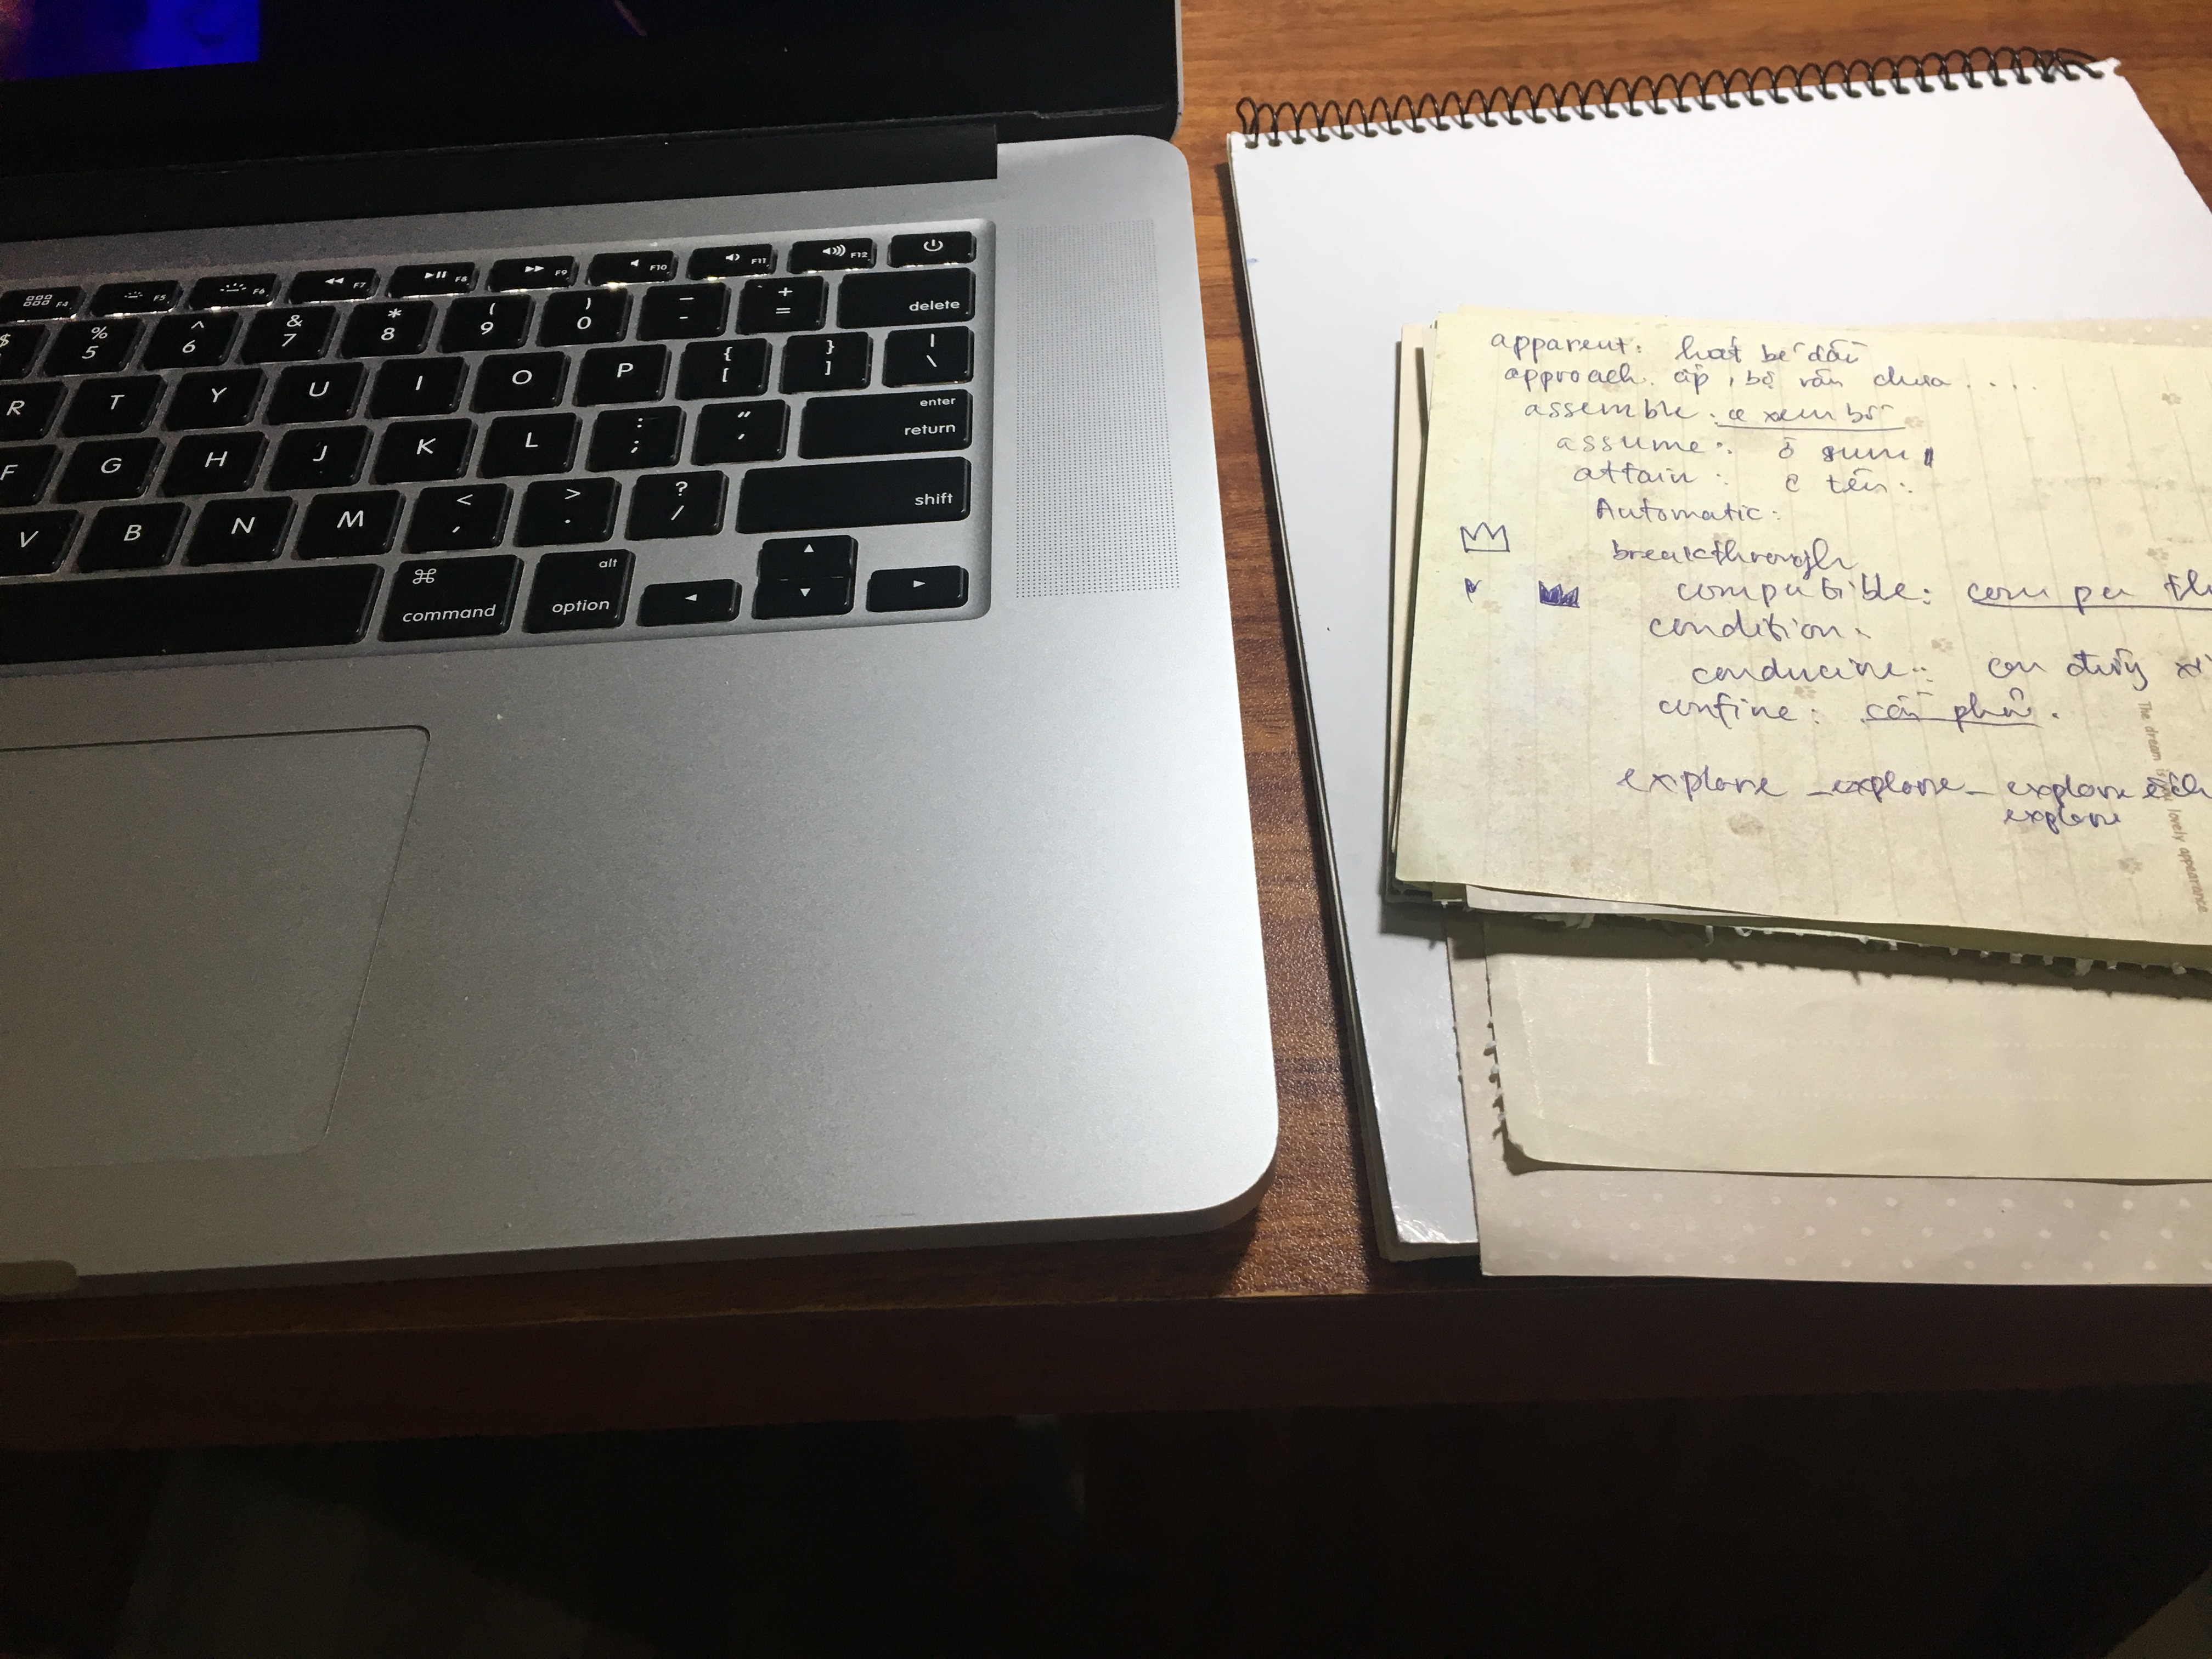 F4 F5 F6 F7 F8 F9 F10 F11 F12
$ % 5 ^ 6 & 7 * 8 ( 9 ) 0 _ - + = delete
R T Y U I O P { [ } ] | \
F G H J K L : ; " ' enter return
V B N M < , > . ? / shift
⌘ command alt option
apparent: hát bé
approach. áp, bộ vấn chưa ....
assemble: xem
assume: ở sum
attain: tên:
Automatic:
breakthrough
compatible: com pa
condition:
conducive: con đường
confine: phải.
explore - explore - explore
explore
The dream lovely appearance